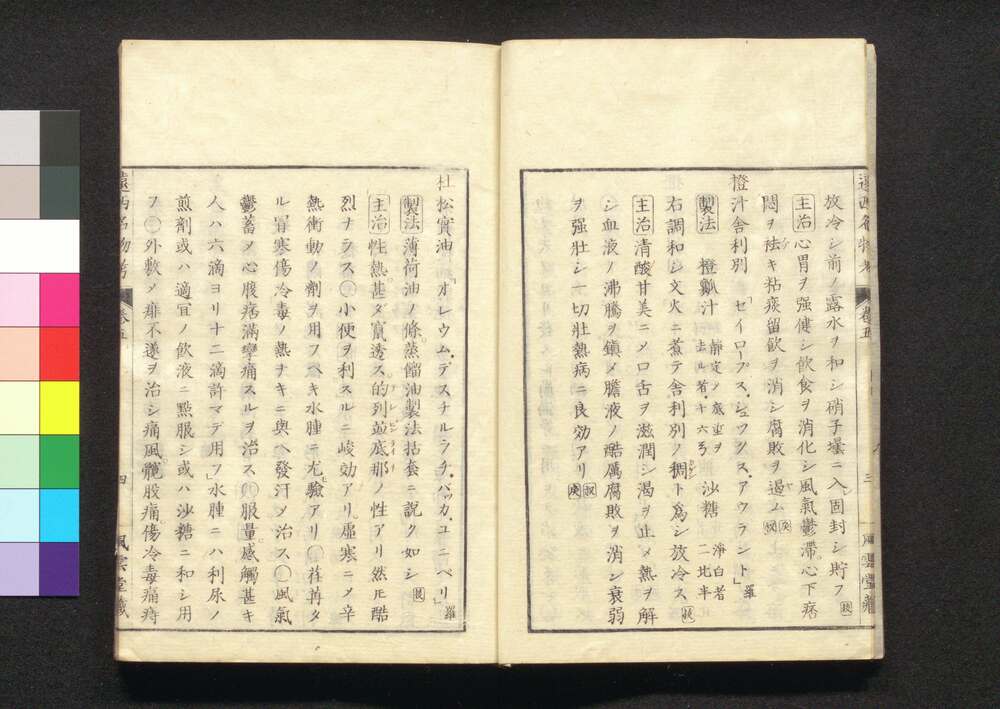 放冷シ前ノ露水ヲ和シ硝子壜ニ入固封シ貯フ
主治 心胃ヲ強健シ飲食ヲ消化シ風氣鬱滞心下痞
悶ヲ祛キ粘痰留飲ヲ消シ腐敗ヲ遏ム
橙汁舎利別 「セイロープス、シュウクス、アウラント」羅
製法 橙瓤汁 静定ノ底垽ヲ去ル者、十六ヲ 沙糖 浄白者二比半
右調和シ文火ニ煮テ舎利別ノ稠トナシ放冷ス
主治 清酸甘美ニメ口舌ヲ滋潤シ渇ヲ止メ熱ヲ解
シ血液ノ沸騰ヲ鎮メ膽液ノ酷厲腐敗ヲ消シ衰弱
ヲ强壮シ一切壮熱病ニ良効アリ
遠西名物考 巻五 三 風雲堂藏
杜松實油 「オレウム、デスチルラチ、バッカ、ユニペリ」羅
製法 薄荷油ノ條蒸餾油製法括套ニ説ク如シ
主治 性熱甚ダ竄透ス的列並底那ノ性アリ然𪜈酷
烈ナラス○小便ヲ利スルニ峻効アリ虚寒ニメ辛
熱衝動ノ劑ヲ用フヘキ水腫ニ尤驗アリ○荏苒タ
ル冒寒傷冷毒ノ熱ナキニ與ヘ發汗メ治ス○風氣
鬱蓄メ心腹痞滿攣痛スルヲ治ス○服量感觸甚キ
人ハ六滴ヨリ十二滴許マデ用フ」水腫ニハ利尿ノ
煎劑或ハ適宜ノ飲液ニ點服シ或ハ沙糖ニ和シ用
フ○外敷メ痱不遂ヲ治シ痛風髖股痛傷冷毒痛痔
遠西名物考 巻五 四 風雲堂藏